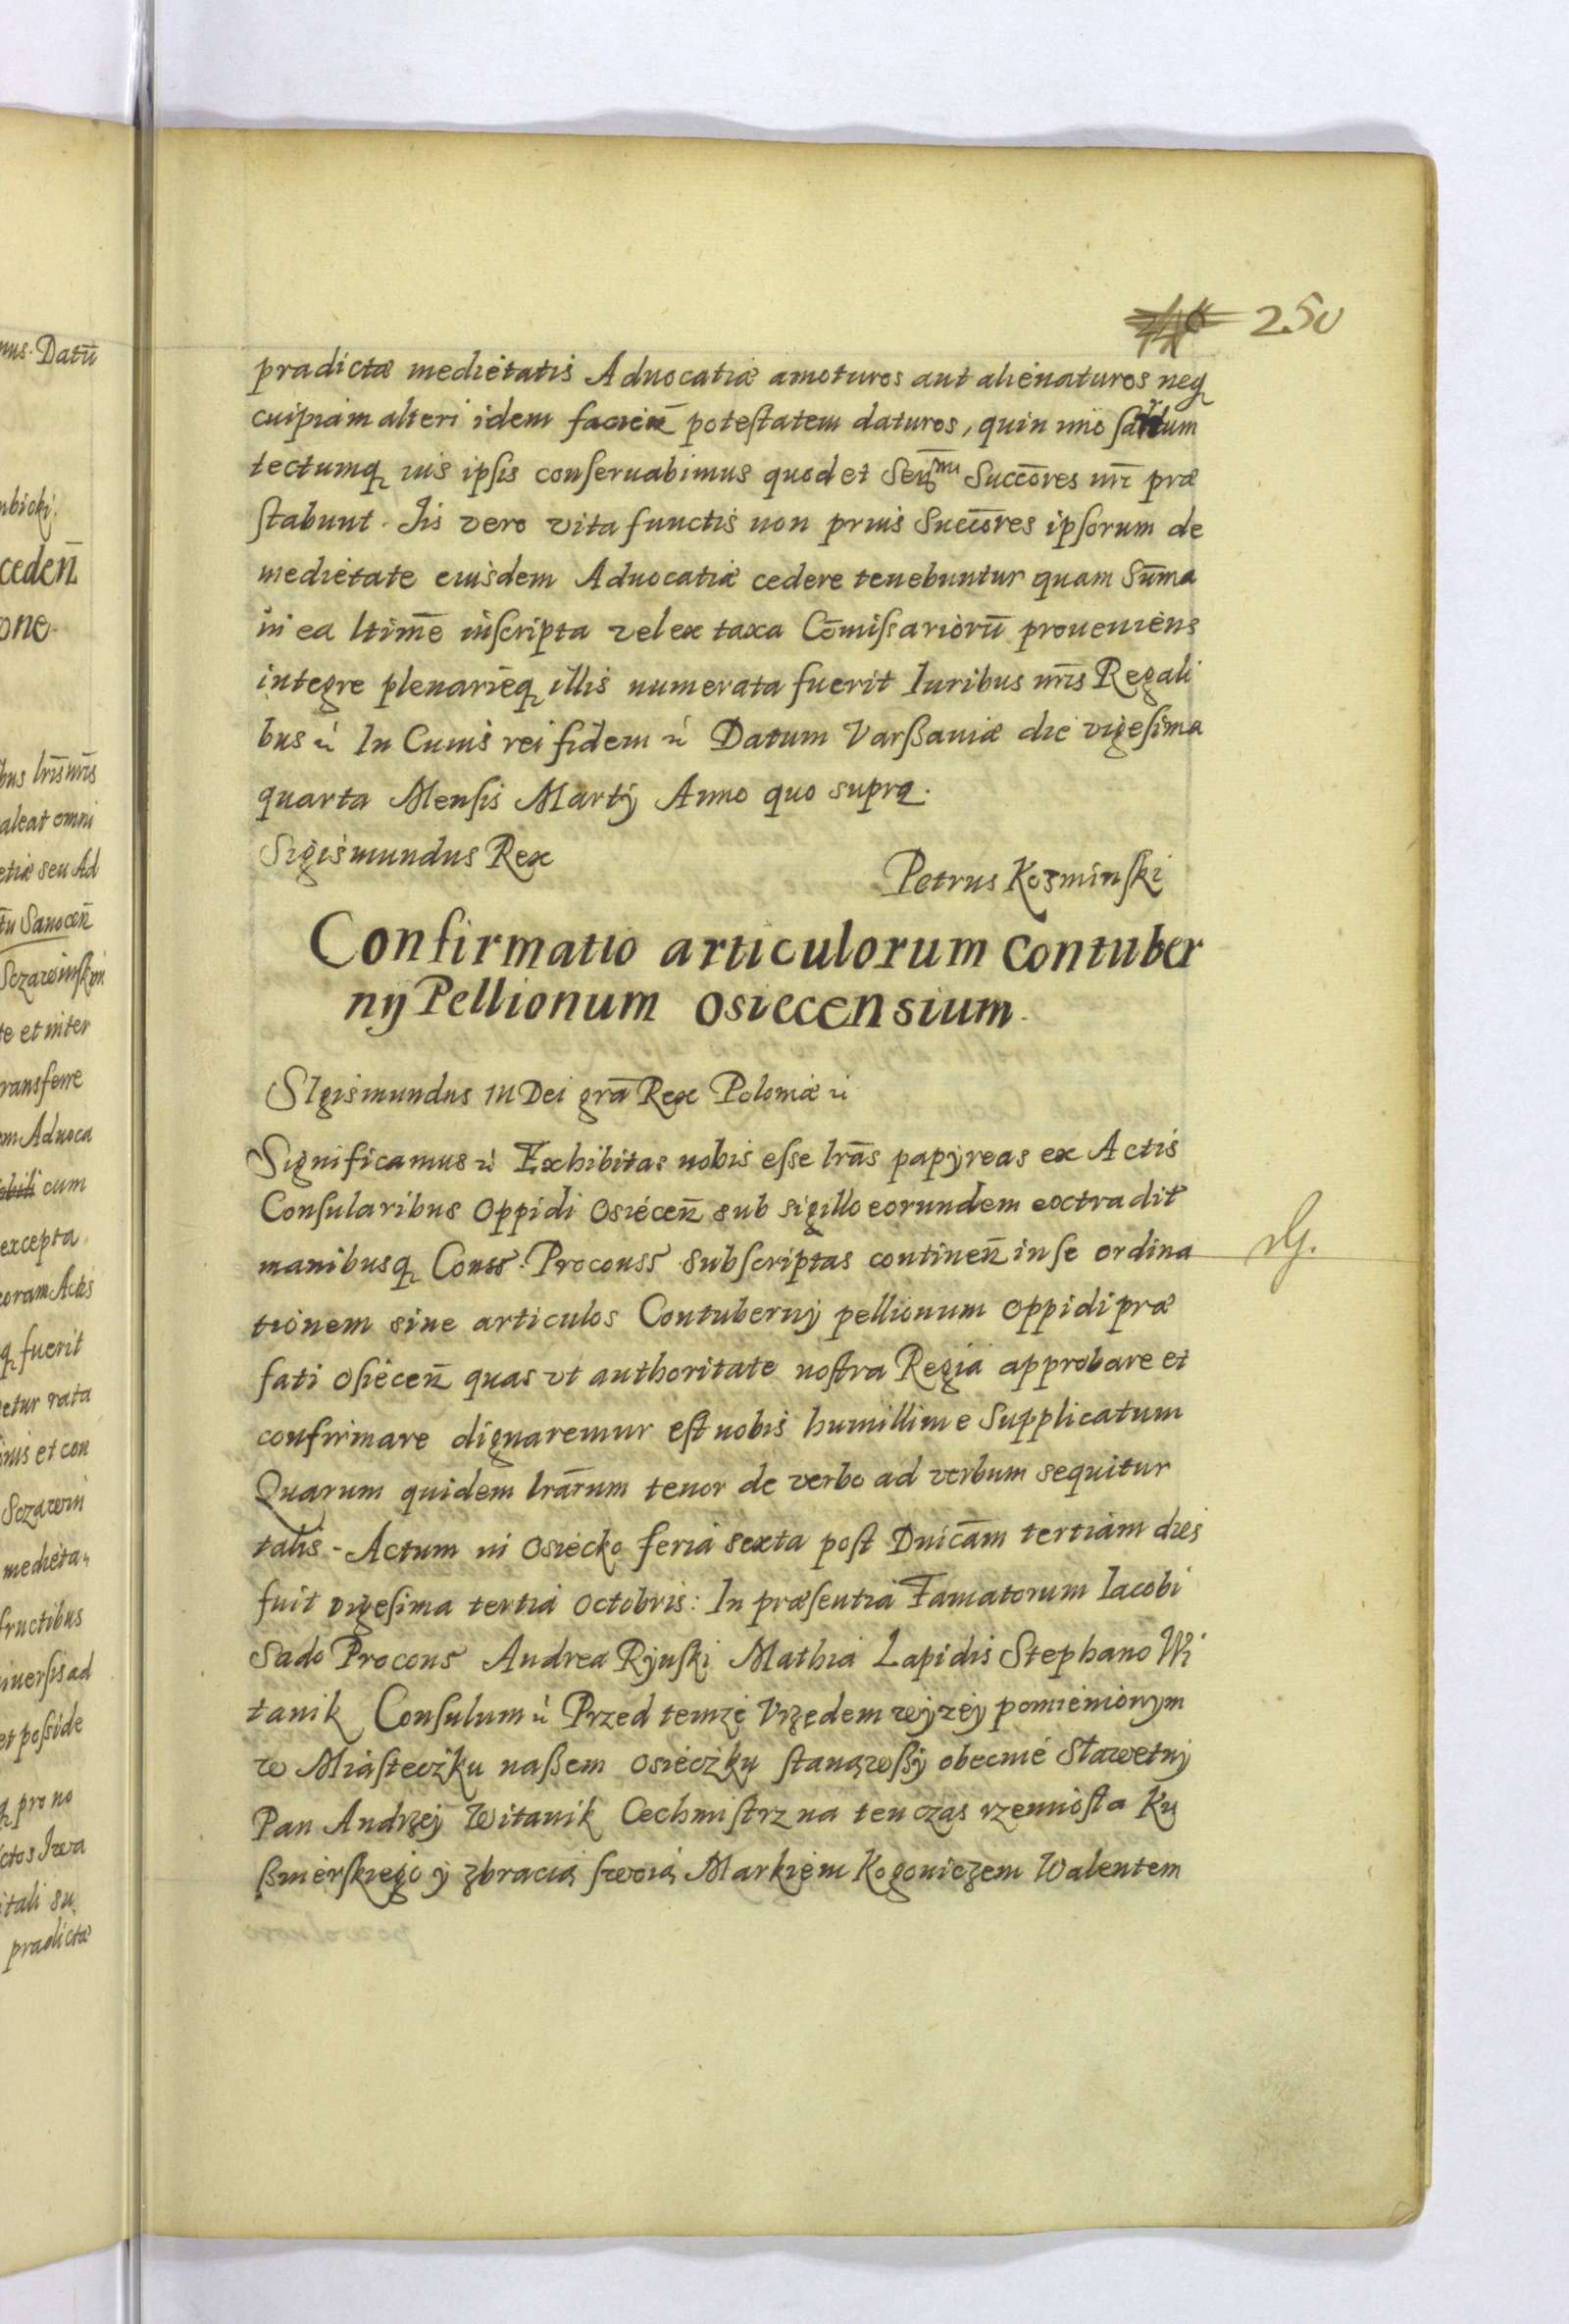 250
prædictæ medietatis Aduocatiæ amoturos aut alienaturos neq
cuipiam alteri idem facień potestatem daturos, quin imo sartum
tectumq ius ipsis conseruabimus quod et Serꝫmi Succōres nr̄i præ
stabunt. Iis vero vita functis non prius Succōres ipsorum de
medietate eiusdem Aduocatiæ cedere tenebuntur quam Sum̄a
in ea ltim̄e inscripta vel ex taxa Com̄issariorū proueniens
integre plenarieq illis numerata fuerit Iuribus nr̄is Regali
bus etc In Cuius rei fidem etc Datum Varssauiæ die vigesima
quarta Mensis Martij Anno quo supra.
Sigismundus Rex
Petrus Kozminski
Confirmatio articulorum Contuber
nij Pellionum Osiecensium.
SIgismundus III Dei grā Rex Poloniæ etc
Significamus etc Exhibitas nobis esse lrās papyreas ex Actis
Consularibus Oppidi Osiecen̄ sub sigillo eorundem extradit
manibusq Conss. Proconss subscriptas continen̄ in se ordina
tionem siue articulos Contubernij pellionum Oppidi præ
fati Osiecen̄ quas vt authoritate nostra Regia approbare et
confirmare dignaremur est nobis humillime Supplicatum
Quarum quidem lrārum tenor de verbo ad verbum sequitur
talis - Actum in Osiecko feria sexta post Dnicām tertiam dies
fuit vigesima tertia Octobris: In præsentia Famatorum Iacobi
Sado Procons Andrea Ryuski Mathia Lapidis Stephano Wi
tanik Consulum etc Przed temże Vrzędem wyżey pomienionym
w Miasteczku naßem Osieczku stanąwßy obecnie Sławetny
Pan Andrzey Witanik Cechmistrz na ten czas rzemiosła Ku
ßnierskiego y zbracią swoią Markiem Kogoniczem Walentem